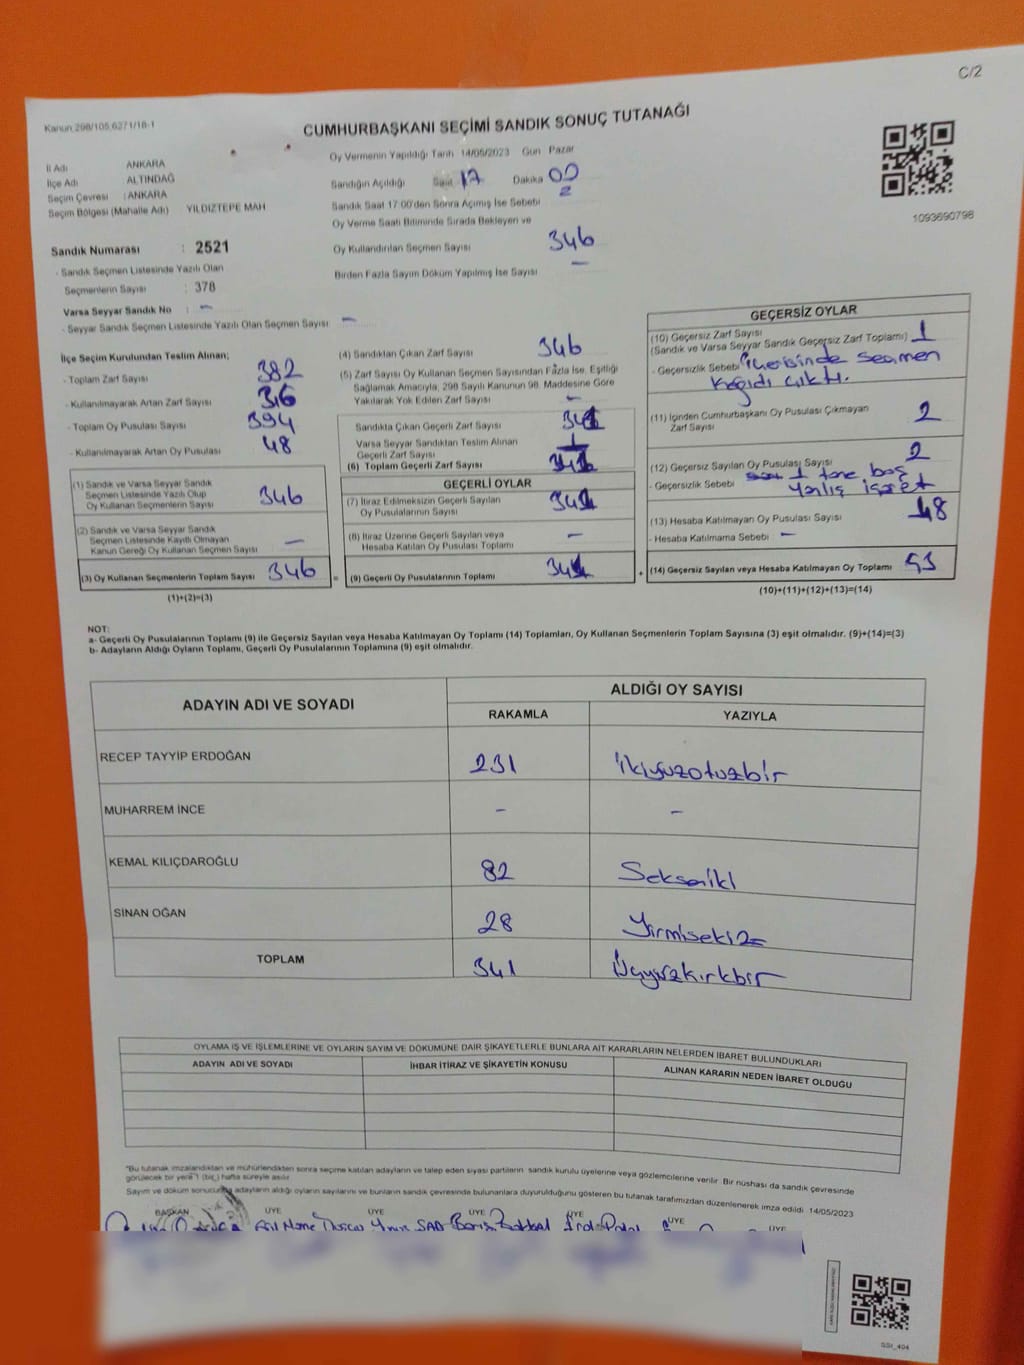 C/2
Kanun:298/105,6271/18-1
CUMHURBAŞKANI SEÇİMİ SANDIK SONUÇ TUTANAĞI
İl Adı ANKARA
İlçe Adı ALTINDAĞ
Seçim Çevresi : ANKARA
Seçim Bölgesi (Mahalle Adı) YILDIZTEPE MAH
Sandık Numarası : 2521
- Sandık Seçmen Listesinde Yazılı Olan
Seçmenlerin Sayısı : 378
Varsa Seyyar Sandık No : -
- Seyyar Sandık Seçmen Listesinde Yazılı Olan Seçmen Sayısı : -
Oy Vermenin Yapıldığı Tarih 14/05/2023 Gün Pazar
Sandığın Açıldığı Saat 17 Dakika 00
Sandık Saat 17:00'den Sonra Açımış İse Sebebi
Oy Verme Saati Bitiminde Sırada Bekleyen ve
Oy Kullandırılan Seçmen Sayısı 346
Birden Fazla Sayım Döküm Yapılmış İse Sayısı -
1093690798
İlçe Seçim Kurulundan Teslim Alınan;
- Toplam Zarf Sayısı 382
- Kullanılmayarak Artan Zarf Sayısı 36
- Toplam Oy Pusulası Sayısı 394
- Kullanılmayarak Artan Oy Pusulası 48
(1) Sandık ve Varsa Seyyar Sandık
Seçmen Listesinde Yazılı Olup
Oy Kullanan Seçmenlerin Sayısı 346
(2) Sandık ve Varsa Seyyar Sandık
Seçmen Listesinde Kayıtlı Olmayan
Kanun Gereği Oy Kullanan Seçmen Sayısı -
(3) Oy Kullanan Seçmenlerin Toplam Sayısı 346
(1)+(2)=(3)
(4) Sandıktan Çıkan Zarf Sayısı 346
(5) Zarf Sayısı Oy Kullanan Seçmen Sayısından Fazla İse, Eşitliği
Sağlamak Amacıyla, 298 Sayılı Kanunun 98. Maddesine Göre
Yakılarak Yok Edilen Zarf Sayısı -
Sandıkta Çıkan Geçerli Zarf Sayısı 341
Varsa Seyyar Sandıktan Teslim Alınan
Geçerli Zarf Sayısı
(6) Toplam Geçerli Zarf Sayısı 341
GEÇERLİ OYLAR
(7) İtiraz Edilmeksizin Geçerli Sayılan
Oy Pusulalarının Sayısı 341
(8) İtiraz Üzerine Geçerli Sayılan ve
Hesaba Katılan Oy Pusulası Toplamı -
= (9) Geçerli Oy Pusulalarının Toplamı 341
GEÇERSİZ OYLAR
(10) Geçersiz Zarf Sayısı
(Sandık ve Varsa Seyyar Sandık Geçersiz Zarf Toplamı) 1
- Geçersizlik Sebebi İçerisinde seçmen
Kağıdı çıktı.
(11) İçinden Cumhurbaşkanı Oy Pusulası Çıkmayan
Zarf Sayısı 2
(12) Geçersiz Sayılan Oy Pusulası Sayısı 2
- Geçersizlik Sebebi 1 tane boş
Yanlış işaret
(13) Hesaba Katılmayan Oy Pusulası Sayısı 48
- Hesaba Katılmama Sebebi -
+ (14) Geçersiz Sayılan veya Hesaba Katılmayan Oy Toplamı 53
(10)+(11)+(12)+(13)=(14)
NOT:
a- Geçerli Oy Pusulalarının Toplamı (9) ile Geçersiz Sayılan veya Hesaba Katılmayan Oy Toplamı (14) Toplamları, Oy Kullanan Seçmenlerin Toplam Sayısına (3) eşit olmalıdır. (9)+(14)=(3)
b- Adayların Aldığı Oyların Toplamı, Geçerli Oy Pusulalarının Toplamına (9) eşit olmalıdır.
ADAYIN ADI VE SOYADI ALDIĞI OY SAYISI
RAKAMLA YAZIYLA
RECEP TAYYİP ERDOĞAN 231 ikiyüzotuzbir
MUHARREM İNCE - -
KEMAL KILIÇDAROĞLU 82 Seksaiki
SİNAN OĞAN 28 Yirmisekiz
TOPLAM 341 Üçyüzkırkbir
OYLAMA İŞ VE İŞLEMLERİNE VE OYLARIN SAYIM VE DÖKÜMÜNE DAİR ŞİKAYETLERLE BUNLARA AİT KARARLARIN NELERDEN İBARET BULUNDUKLARI
ADAYIN ADI VE SOYADI İHBAR İTİRAZ VE ŞİKAYETİN KONUSU ALINAN KARARIN NEDEN İBARET OLDUĞU
"Bu tutanak imzalandıktan ve mühürlendikten sonra seçime katılan adayların ve talep eden siyasi partilerin sandık kurulu üyelerine veya gözlemcilerine verilir. Bir nüshası da sandık çevresinde
görülecek bir yere 1 (bir) hafta süreyle asılır
Sayım ve döküm sonucunda adayların aldığı oyların sayılarını ve bunların sandık çevresinde bulunanlara duyurulduğunu gösteren bu tutanak tarafımızdan düzenlenerek imza edildi 14/05/2023
BAŞKAN ÜYE ÜYE ÜYE ÜYE ÜYE ÜYE
SSI_404